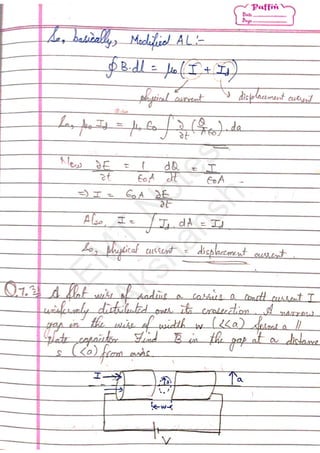 Puffin
Date
Page
So, basically, Modified AL :-
∮B.dl = μ₀ (I + I_d)
physical current displacement current
So, μ₀ I_d = μ₀ ε₀ ∫ ∂/∂t (Q/Aε₀) . da
Now ∂E/∂t = 1/ε₀A dQ/dt = I/ε₀A
⇒ I = ε₀A ∂E/∂t
Also, I = ∫ J_d . dA = I_d
So, physical current = displacement current.
Q.7.3) A flat wire of radius a carries a constt current I
uniformly distributed over its crosection. A narrow
gap in the wire of width w (<<a) forms a ||
plate capacitor. Find B in the gap at a distance
s (<a) from axis.
I a
w
V
EMT Notes
Akshansh